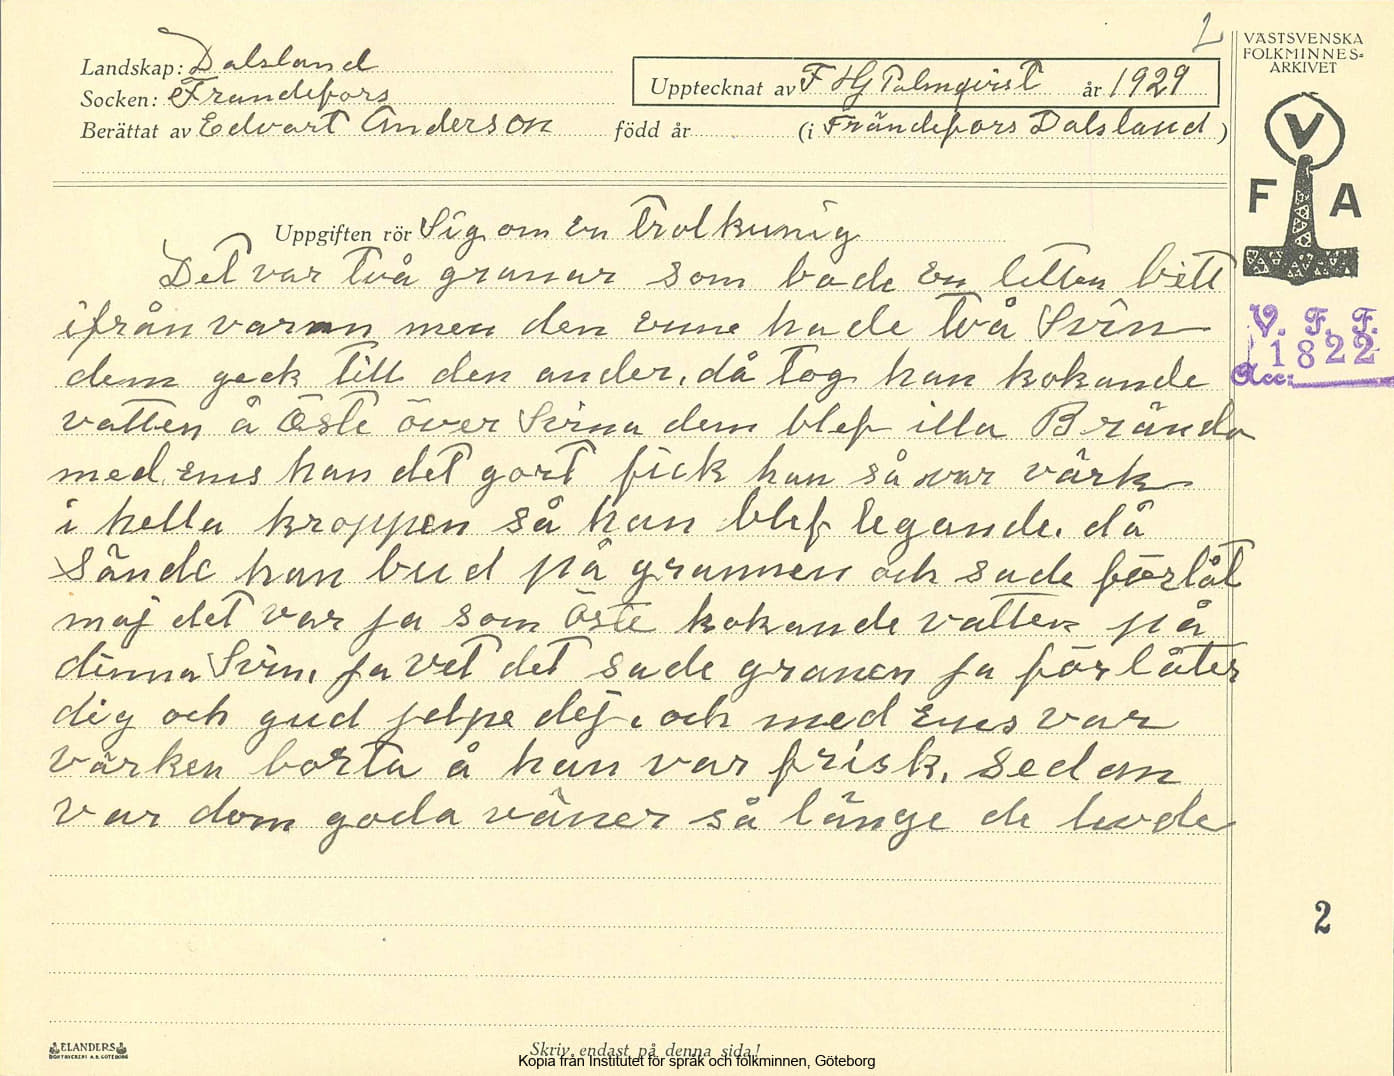 2
VÄSTSVENSKA
FOLKMINNES=
ARKIVET
Landskap: Dalsland
Socken: Frandefors
Upptecknat av F HG Palmqvist år 1929
Berättat av Edvart Anderson född år (i Frändefors Dalsland)
V
F A
Uppgiften rör Sig om En trolkunig
Det var två granar som bode En litten bitt
ifrån varan men den Enne hade två Svin
dem geck till den ander. då tog han kokande
vatten å Öste över Svina dem blef illa Brända
med Ens han det gort fick han så svar värk
i hella kroppen så han blef legande. då
Sände han bud på grannen och sade förlåt
maj det var ja som Öste kokande vatten på
dinna Svin, ja vet det sade granen ja förlåter
dig och gud jelpe dej. och med Ens var
värken borta å han var frisk, Sedan
var dom goda väner så länge de levde
V. F. F.
1822
Acc:
2
ELANDERS
BOKTRYCKERI A.B. GÖTEBORG
Skriv endast på denna sida!
Kopia från Institutet för språk och folkminnen, Göteborg